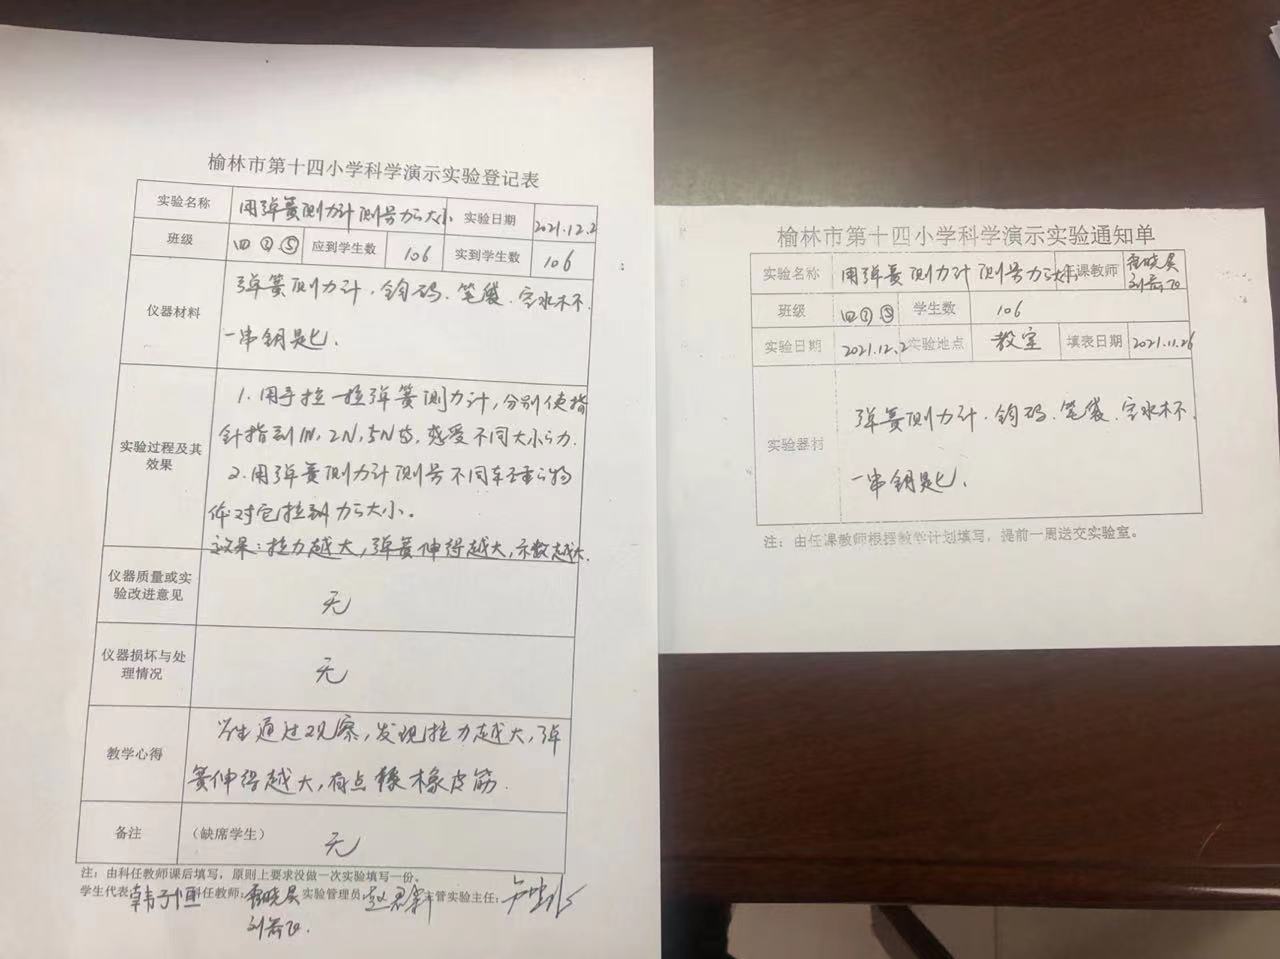 榆林市第十四小学科学演示实验登记表
实验名称 用弹簧测力计测量力的大小 实验日期 2021.12.2
班级 四②⑤ 应到学生数 106 实到学生数 106
仪器材料
弹簧测力计、钩码、笔袋、空水杯、
一串钥匙、
实验过程及其
效果
1.用手拉一拉弹簧测力计,分别使指
针指到1N,2N,5N处,感受不同大小的力.
2.用弹簧测力计测量不同轻重的物
体对它拉力的大小。
效果:拉力越大,弹簧伸得越大,示数越大.
仪器质量或实
验改进意见
无
仪器损坏与处
理情况
无
教学心得
学生通过观察,发现拉力越大,弹
簧伸得越大,有点像橡皮筋.
备注 (缺席学生) 无
注:由科任教师课后填写,原则上要求没做一次实验填写一份。
学生代表: 韩子恒 科任教师: 实验管理员 主管实验主任:
榆林市第十四小学科学演示实验通知单
实验名称 用弹簧测力计测量力的大小 任课教师
班级 四 学生数 106
实验日期 2021.12.2 实验地点 教室 填表日期 2021.11.26
实验器材
弹簧测力计、钩码、笔袋、空水杯、
一串钥匙、
注:由任课教师根据教学计划填写,提前一周送交实验室。